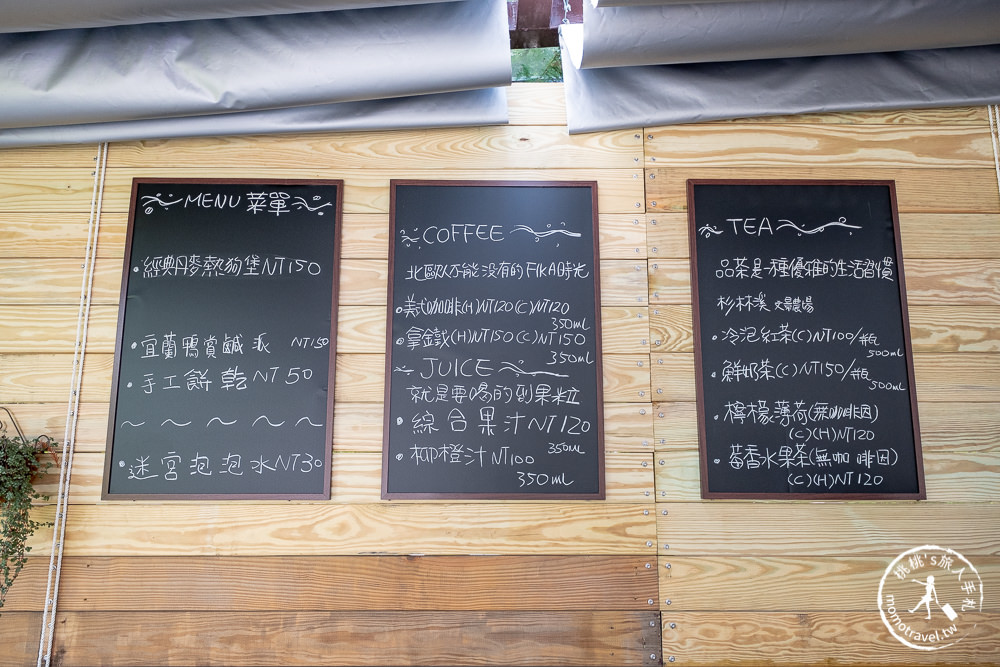 MENU 菜單
·經典丹麥熱狗堡NT150
·宜蘭鴨賞鹹派 NT150
·手工餅乾NT50
~ ~ ~ ~ ~
·迷宮泡泡水NT30
COFFEE
北歐人不能沒有的FIKA時光
·美式咖啡(H)NT120(C)NT120
350mL
·拿鐵(H)NT150(C)NT150
350mL
JUICE
就是要喝的到果粒
·綜合果汁NT120
350mL
·柳橙汁NT100
350mL
TEA
品茶是一種優雅的生活習慣
杉林溪 農場
·冷泡紅茶(C)NT100/瓶
500mL
·鮮奶茶(C)NT150/瓶
500mL
·檸檬薄荷(無咖啡因)
(C)(H)NT120
·蕃香水果茶(無咖啡因)
(C)(H)NT120
桃桃's旅人手札
momotravel.tw